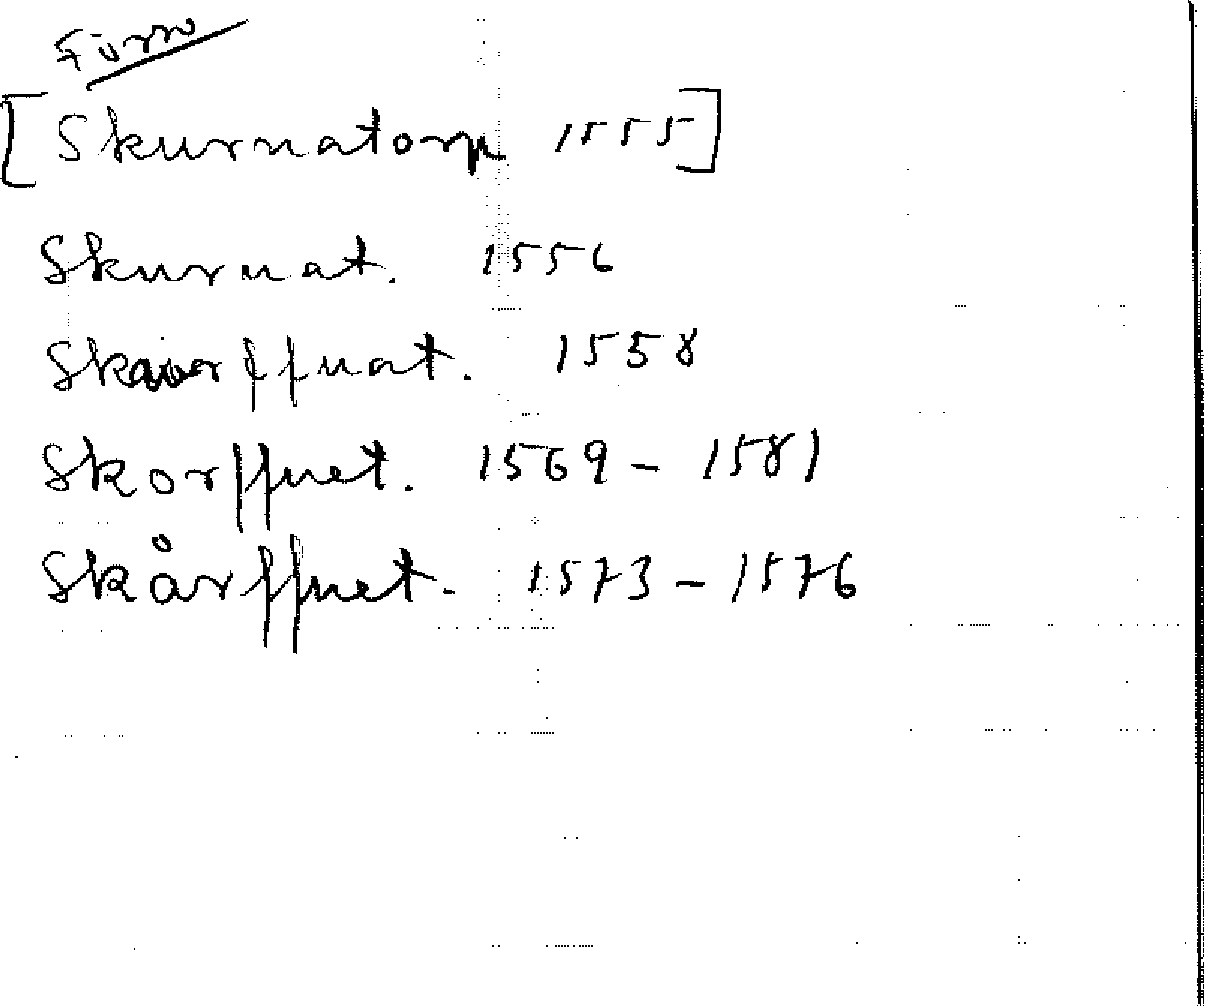 [Skurnatorp 1555]
Skurnat. 1556
Skorffnat. 1558
Skorffnet. 1569 - 1581
Skårffnet. 1573 - 1576